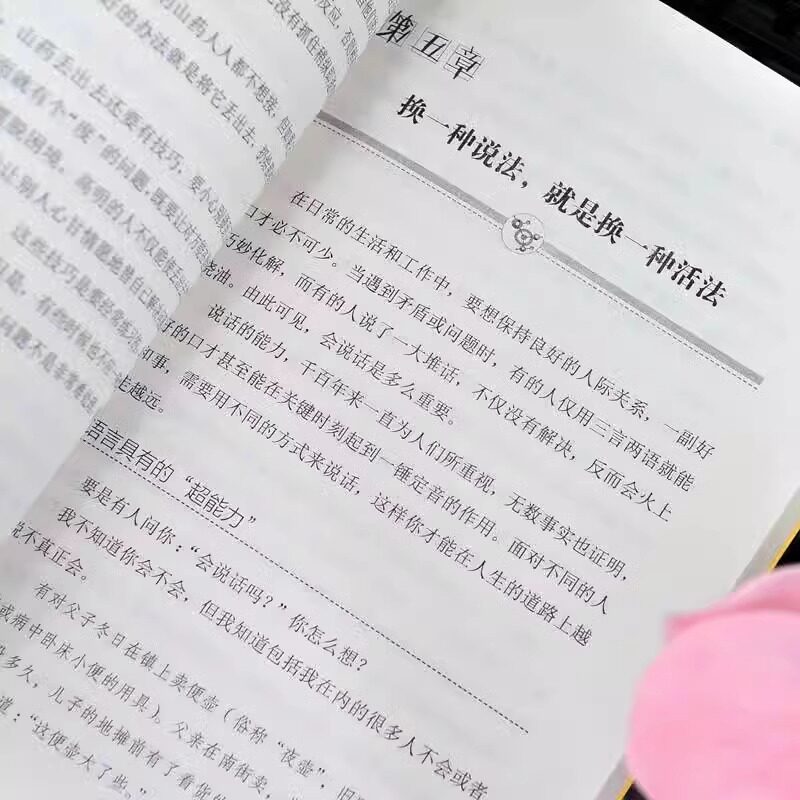 山药人人都不想接，但如
好的办法就是将它丢出去，
山药丢出去还要有技巧，要小心别
就有个“度”的问题，既要让对方
脱困境。高明的人不仅能
让别人心甘情愿地替自己
这些技巧是要经常练习
第五章
换一种说法，就是换一种活法
在日常的生活和工作中，要想保持良好的人际关系，一副好
口才必不可少。当遇到矛盾或问题时，有的人仅用三言两语就能
巧妙化解，而有的人说了一大堆话，不仅没有解决，反而会火上
浇油。由此可见，会说话是多么重要。
说话的能力，千百年来一直为人们所重视，无数事实也证明，
子的口才甚至能在关键时刻起到一锤定音的作用。面对不同的人
和事，需要用不同的方式来说话，这样你才能在人生的道路上越
走越远。
语言具有的“超能力”
要是有人问你：“会说话吗？”你怎么想？
我不知道你会不会，但我知道包括我在内的很多人不会或者
说不真正会。
有对父子冬日在镇上卖便壶（俗称“夜壶”，旧
或病中卧床小便的用具）。父亲在南街卖，
没多久，儿子的地摊前有了看货的
道：“这便壶大了些。”